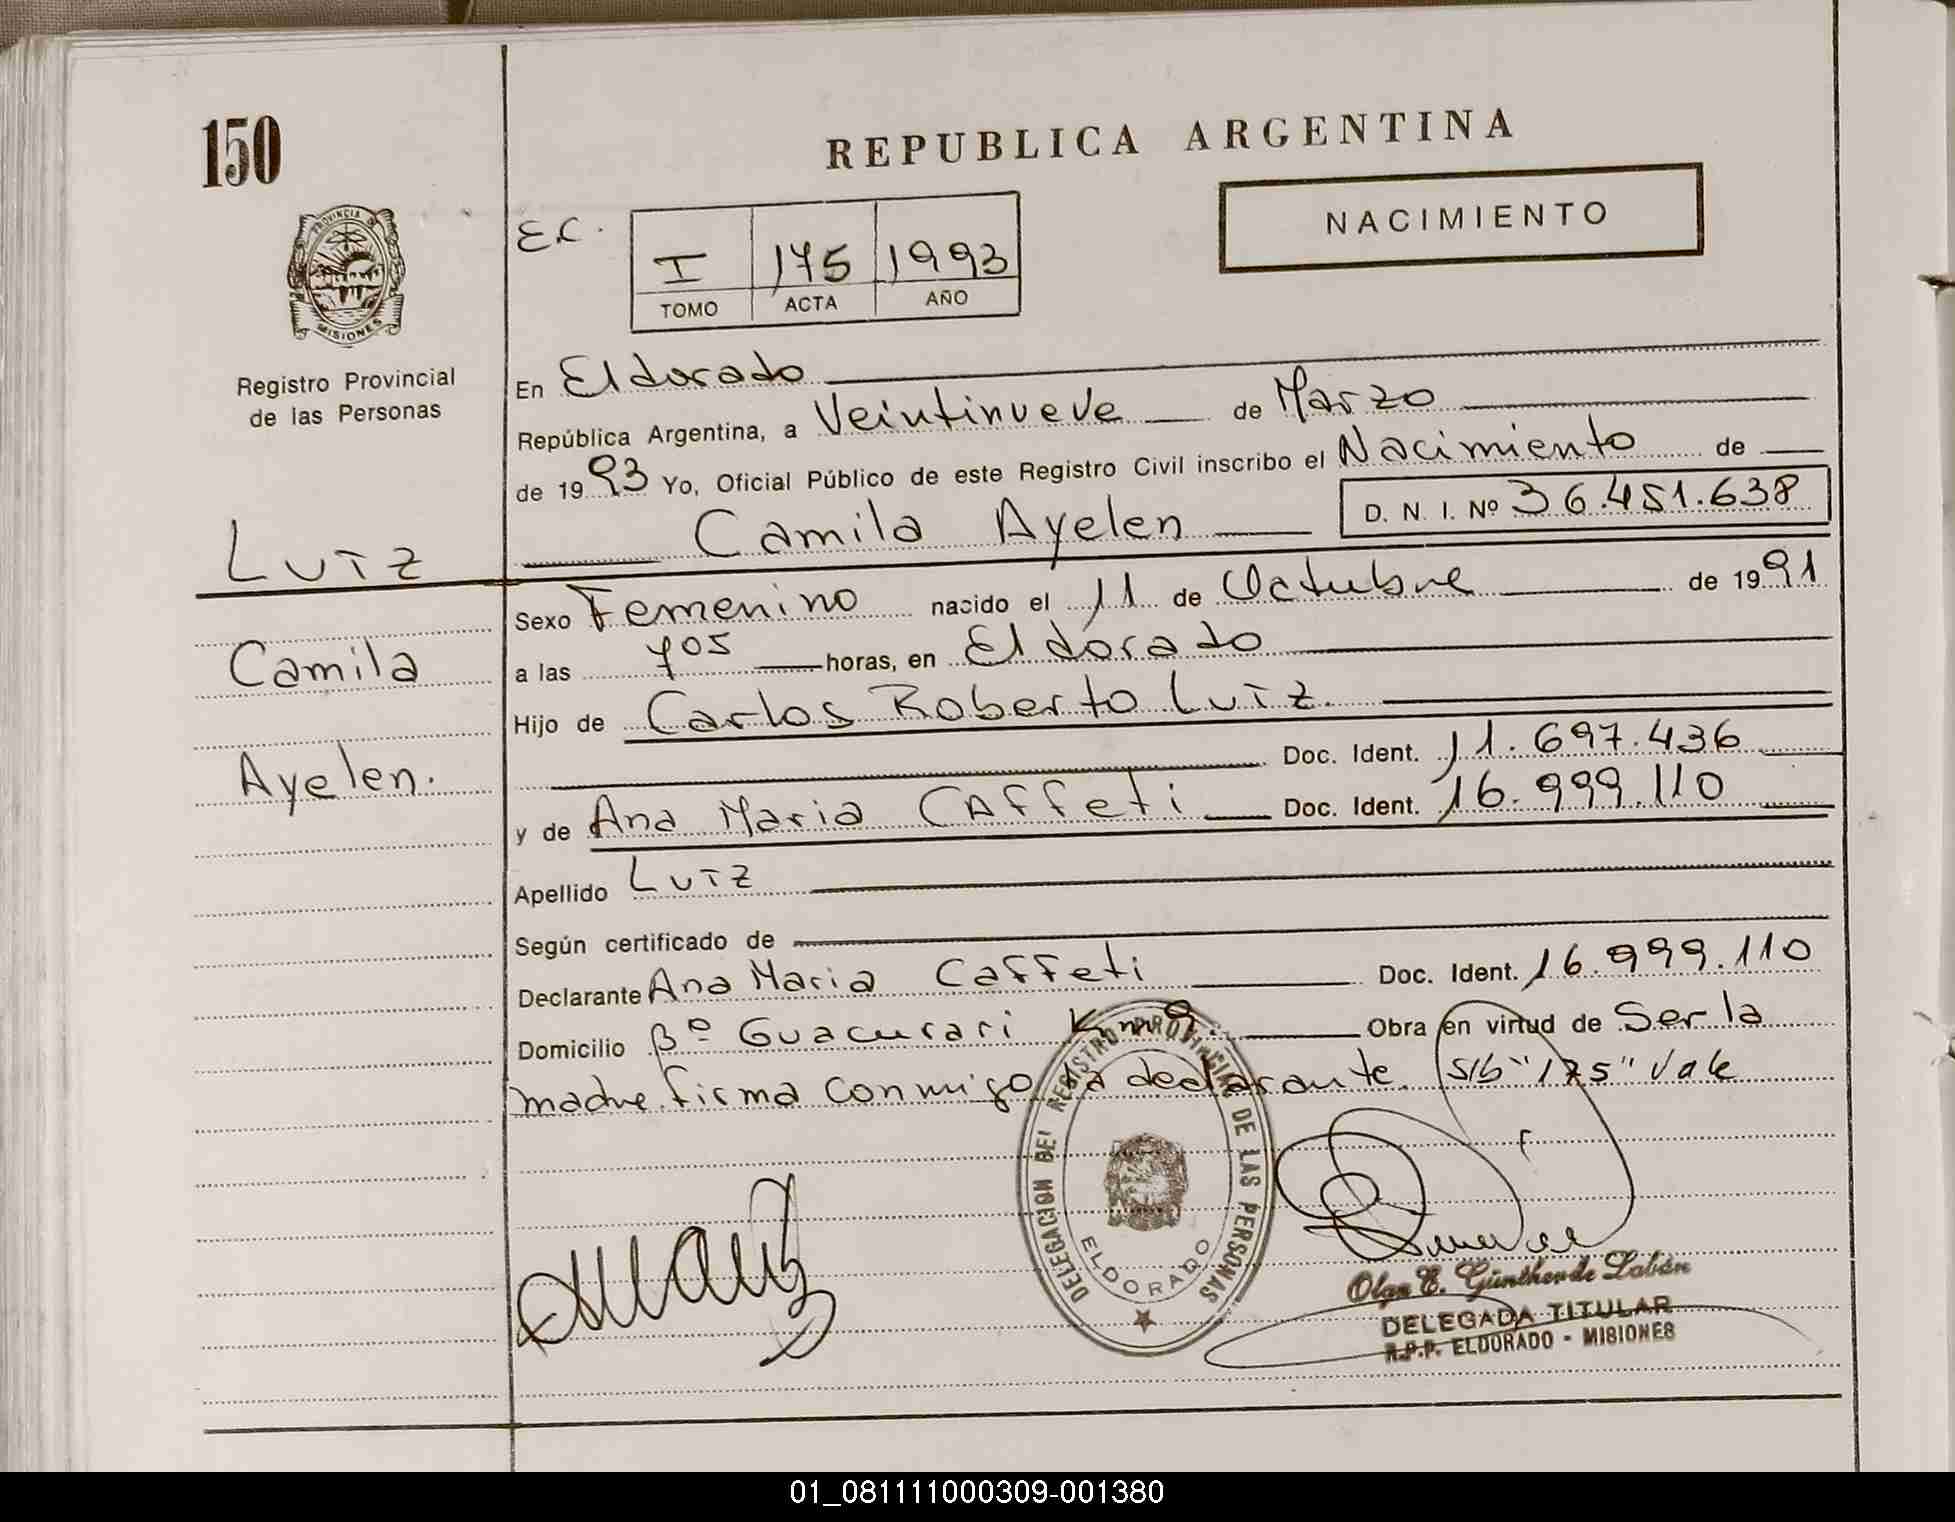 150
REPUBLICA ARGENTINA
NACIMIENTO
PROVINCIA DE
MISIONES
Registro Provincial
de las Personas
E.C.
I 175 1993
TOMO ACTA AÑO
En Eldorado
República Argentina, a Veintinueve de Marzo
de 1993 Yo, Oficial Público de este Registro Civil inscribo el Nacimiento de
Camila Ayelen D. N. I. Nº 36.451.638
LUIZ
Camila
Ayelen.
Sexo Femenino nacido el 11 de Octubre de 1991
a las 705 horas, en Eldorado
Hijo de Carlos Roberto Luiz.
Doc. Ident. 11.697.436
y de Ana Maria CAffeti Doc. Ident. 16.999.110
Apellido LUIZ
Según certificado de
Declarante Ana Maria Caffeti Doc. Ident. 16.999.110
Domicilio Bº Guacurari Km 9. Obra en virtud de Ser la
madre. firma conmigo la declarante. S/b "175" Vale
DELEGACION DEL REGISTRO PROVINCIAL DE LAS PERSONAS
ELDORADO
Olga E. Günther de Labán
DELEGADA TITULAR
R.P.P. ELDORADO - MISIONES
01_081111000309-001380